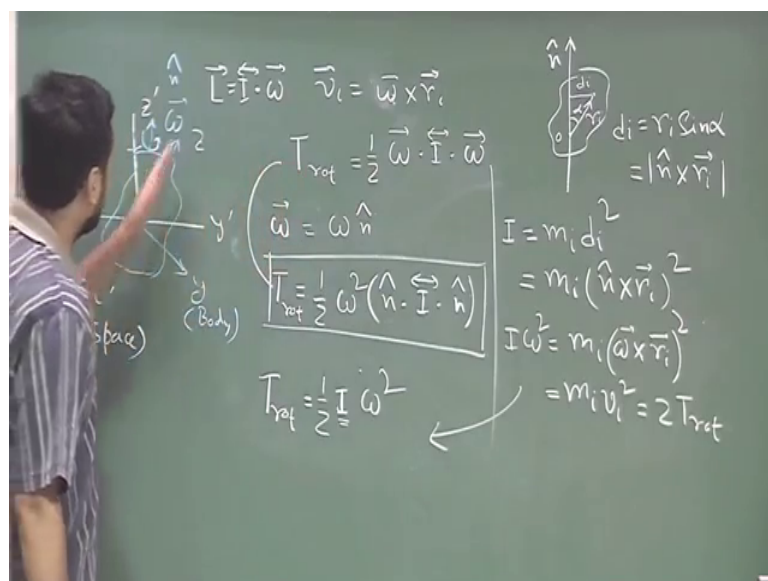 n̂
L⃗ = I⃡ · ω⃗
v⃗ᵢ = ω⃗ × r⃗ᵢ
z'
ω⃗
z
y'
y
(Body)
Space)
T_rot = 1/2 ω⃗ · I⃡ · ω⃗
ω⃗ = ω n̂
T_rot = 1/2 ω² (n̂ · I⃡ · n̂)
T_rot = 1/2 I ω²
n̂
dᵢ
α
rᵢ
O
dᵢ = rᵢ Sinα
= |n̂ × r⃗ᵢ|
I = mᵢ dᵢ²
= mᵢ (n̂ × r⃗ᵢ)²
Iω² = mᵢ (ω⃗ × r⃗ᵢ)²
= mᵢ vᵢ² = 2 T_rot